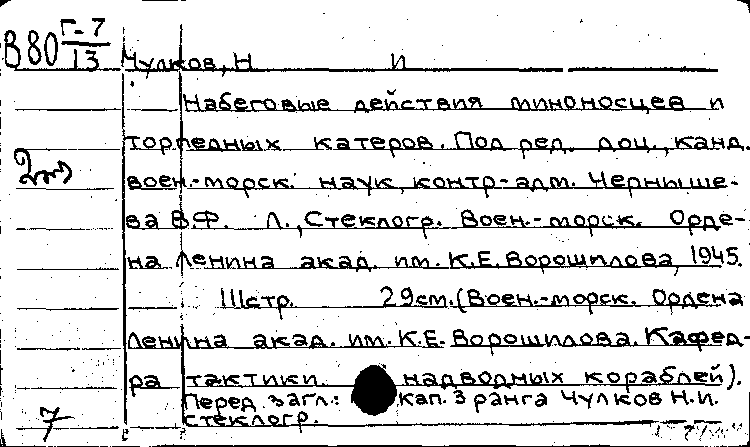 В80 Г-7/13
Чулков, Н И
Набеговые действия миноносцев и
торпедных катеров. Под ред. доц., канд.
воен.-морск. наук, контр-адм. Черныше-
ва В.Ф. Л., Стеклогр. Воен.-морск. Орде-
на Ленина акад. им. К.Е. Ворошилова, 1945.
111стр. 29см. (Воен.-морск. Ордена
Ленина акад. им. К.Е. Ворошилова. Кафед-
ра тактики надводных кораблей).
Перед загл.: кап. 3 ранга Чулков Н.И.
Стеклогр.
7